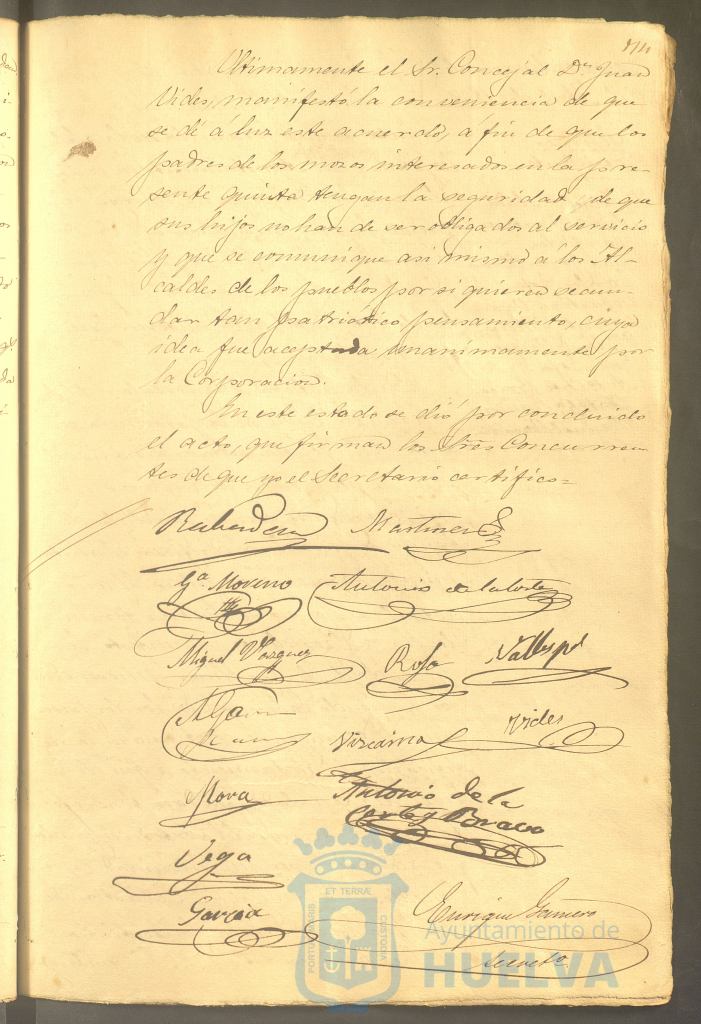 Ultimamente el Sr. Concejal Dn. Juan
Vides, manifestó la conveniencia de que
se dé á luz este acuerdo, á fin de que los
padres de los mozos interesados en la pre-
sente quinta tengan la seguridad de que
sus hijos no han de ser obligados al servicio
y que se comunique asi mismo á los Al-
caldes de los pueblos por si quieren secun-
dar tan patriótico pensamiento, cuya
idea fue aceptada unanimamente por
la Corporacion.
En este estado se dió por concluido
el acto, que firman los Sres Concurren-
tes de que yo el Secretario certifico=
Martinez
Ga. Moreno Antonio de la Corte
Miguel Vazquez Rofa Vallespi
Vizcaino Vides
Mora Antonio de la
Corte y Bravo
Vega
Garcia Enrique Gamero
Secreto
PORTUS MARIS ET TERRÆ CUSTODIA
Ayuntamiento de
HUELVA